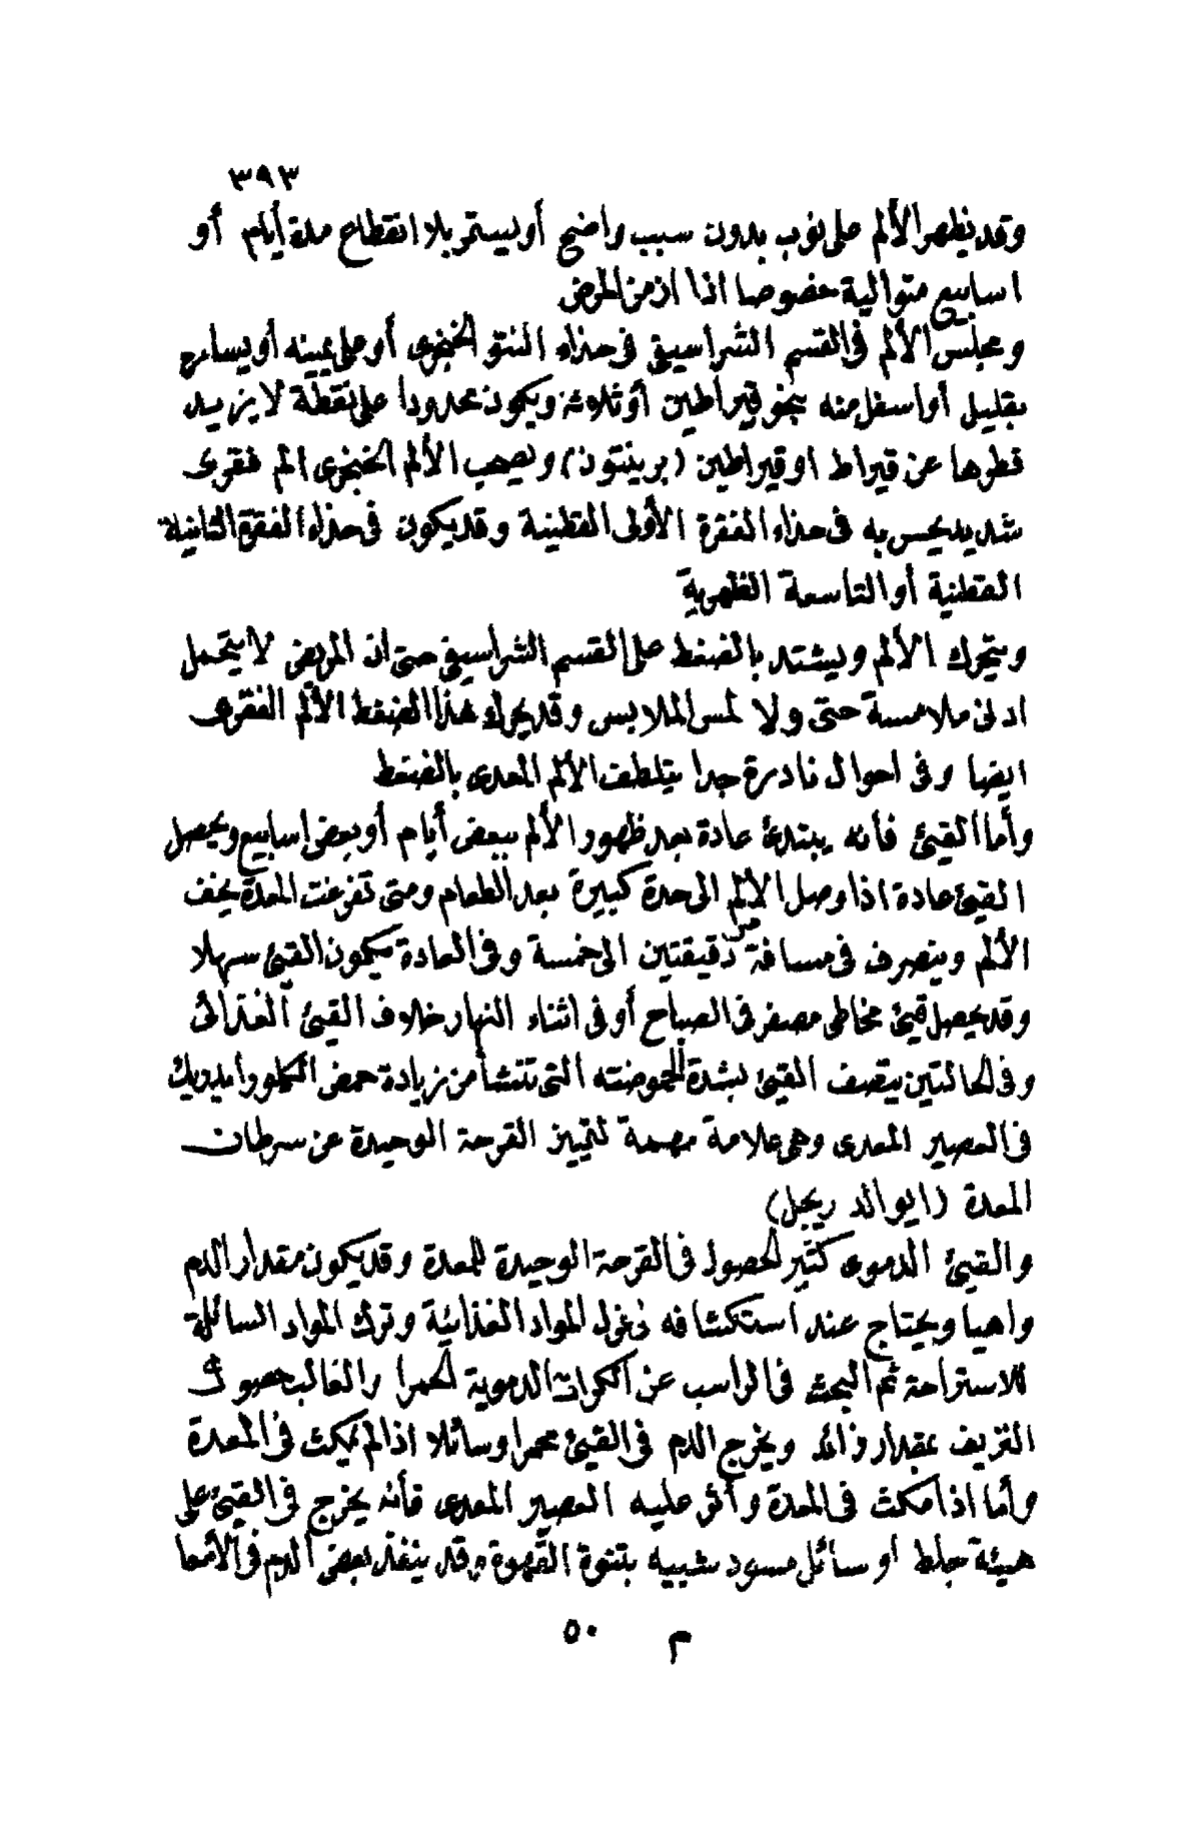 ٣٩٣
وقد يظهر الألم على نوب بدون سبب واضح أو يستمر بلا انقطاع مدة أيام أو
اسابيع متوالية خصوصا اذا ازمن المرض
ومجلس الألم فى القسم الشراسيفى فى حذاء النتو الخنجرى أو على يمينه أو يساره
بقليل أو اسفل منه بنحو قيراطين أو ثلاثه ويكون محدودا على نقطة لا يزيد
قطرها عن قيراط او قيراطين (برينتون) ويصحب الألم الخنجرى الم فقرى
شديد يحس به فى حذاء الفقرة الأولى القطنية وقد يكون فى حذاء الفقرة الثانية
القطنية أو التاسعة الظهرية
ويتحرك الألم ويشتد بالضغط على القسم الشراسيفى حتى ان المريض لا يتحمل
ادنى ملامسة حتى ولا لمس الملابس وقد يحرك هذا الضغط الألم الفقرى
ايضا وفى احوال نادرة جدا يتلطف الألم المعدى بالضغط
وأما القيئ فأنه يبتدئ عادة بعد ظهور الألم ببعض أيام أو بعض اسابيع ويحصل
القيئ عادة اذا وصل الألم الى حدة كبيرة بعد الطعام ومتى تفرغت المعدة يخف
الألم وينصرف فى مسافة من دقيقتين الى خمسة وفى العادة يكون القيئ سهلا
وقد يحصل قيئ مخاطى مصفر فى الصباح أو فى اثناء النهار خلاف القيئ الغذائى
وفى الحالتين يتصف القيئ بشدة الحموضته التى تنشأ من زيادة حمض الكلورايدريك
فى العصير المعدى وهى علامة مهمة لتمييز القرحة الوحيدة عن سرطان
المعدة (ايوالد ريجل)
والقيئ الدموى كثير الحصول فى القرحة الوحيدة للمعدة وقد يكون مقدار الدم
واهيا ويحتاج عند استكشافه لغزل المواد الغذائية وترك المواد السائلة
للاستراحة ثم البحث فى الراسب عن الكرات الدموية الحمرا والغالب حصول
النزيف بمقدار زائد ويخرج الدم فى القيئ محمرا وسائلا اذا لم يمكث فى المعدة
وأما اذا مكث فى المعدة وأثر عليه العصير المعدى فأنه يخرج فى القيئ على
هيئة جلط أو سائل مسود شبيه بتنوة القهوة وقد ينفذ بعض الدم فى الأمعا
م ٥٠